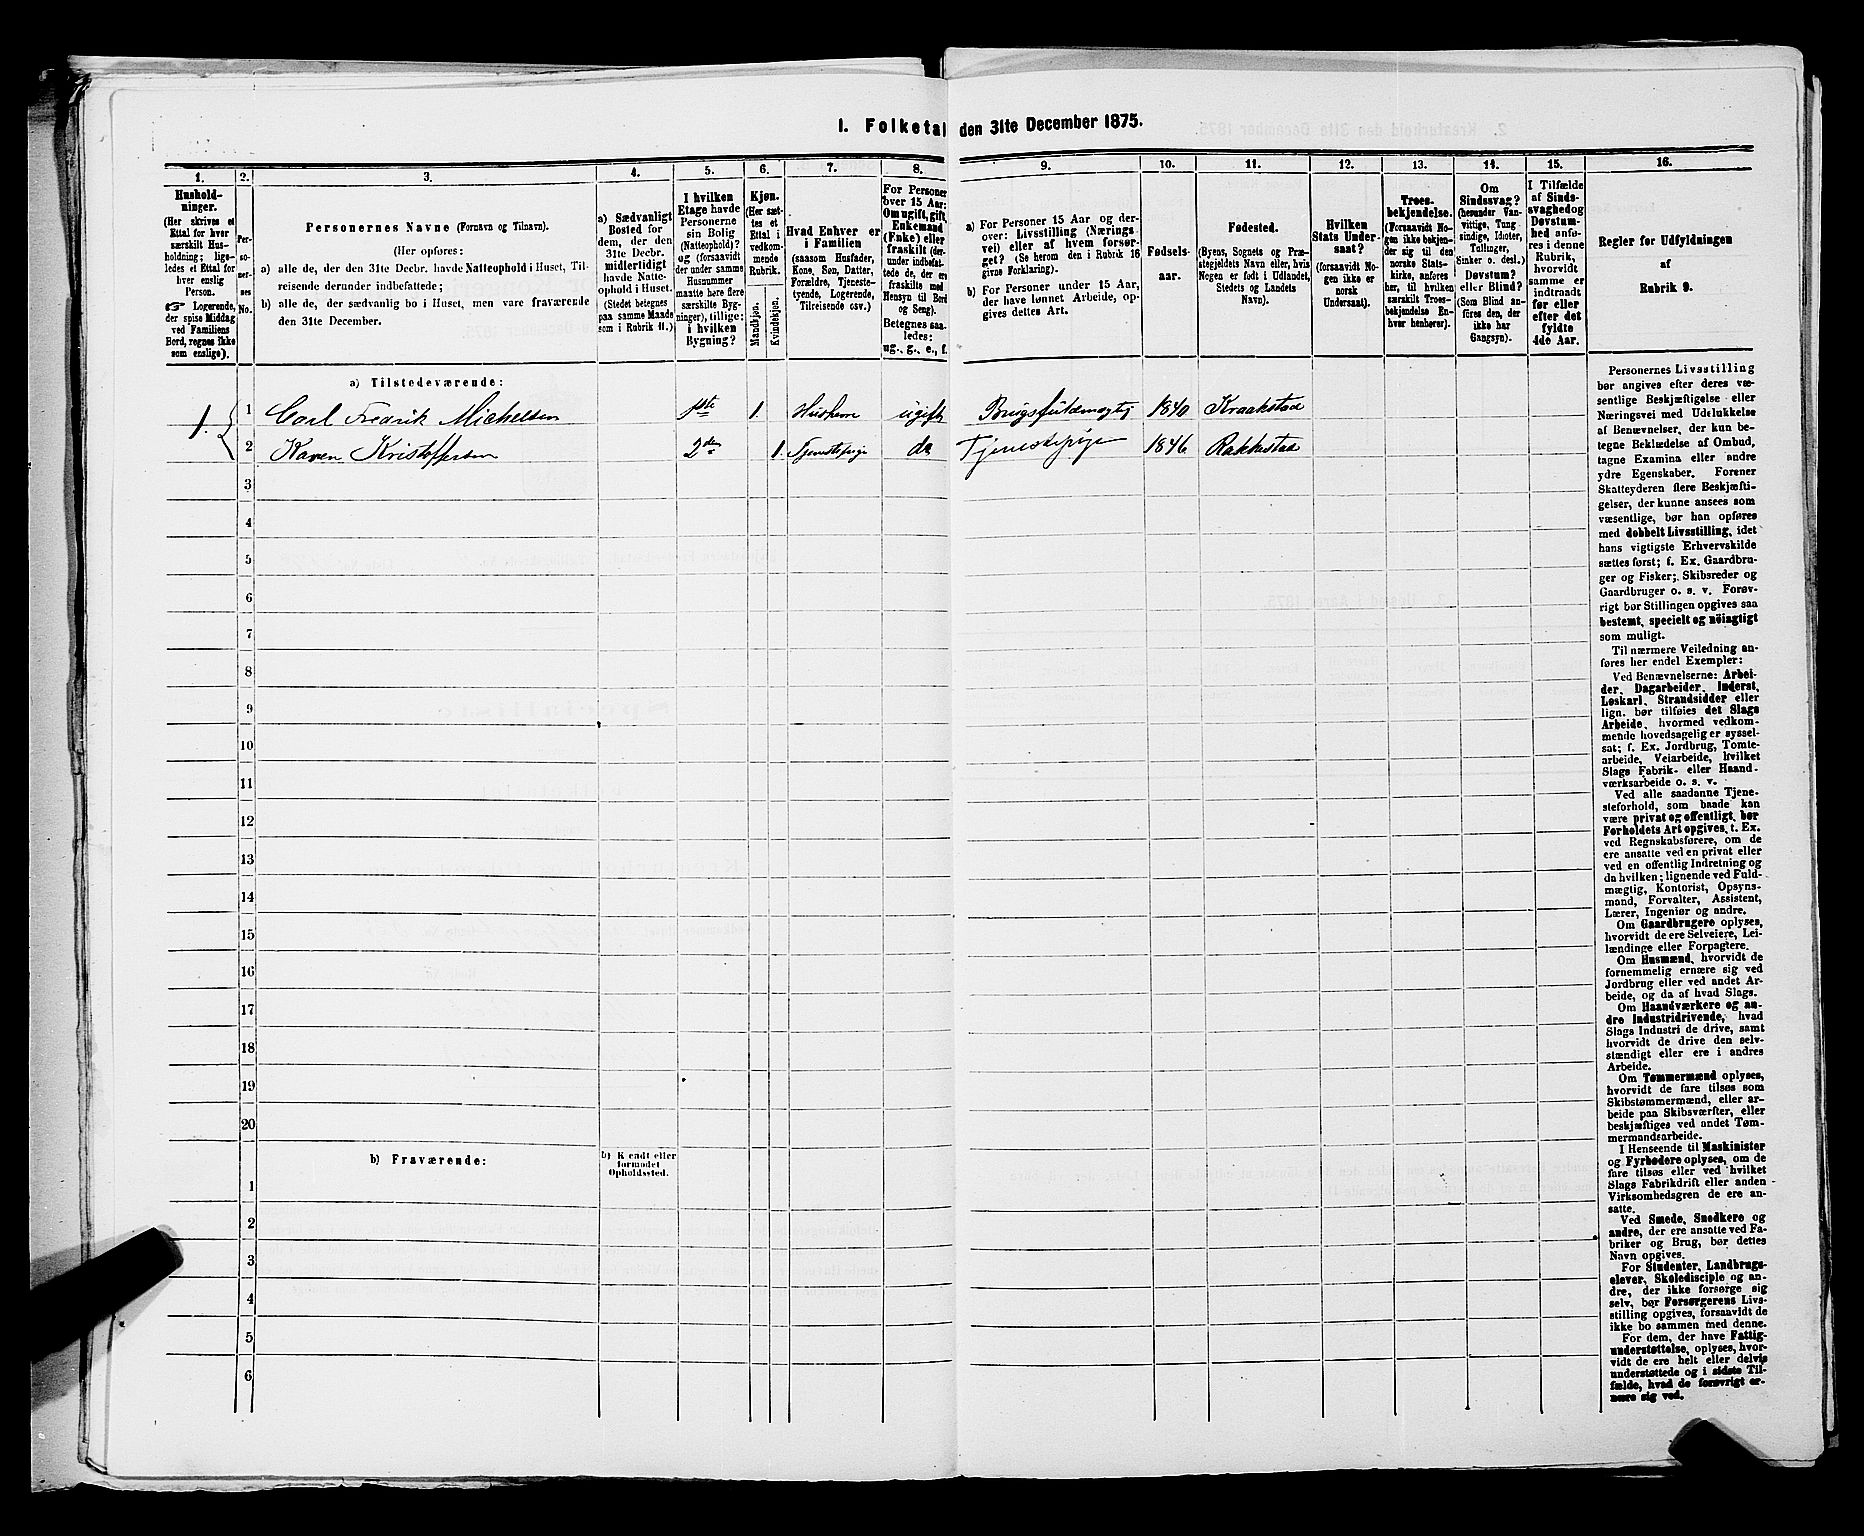 1. Folketal den 31te December 1875.
1. 2. 3. 4. 5. 6. 7. 8. 9. 10. 11. 12. 13. 14. 15. 16.
Hushold-
ninger.
(Her skrives et
Ettal for hver
særskilt Hus-
holdning; lige-
ledes et Ettal for
hver enslig
Person.
☞ Logerende,
der spise Middag
ved Familiens
Bord, regnes ikke
som enslige).
Per-
so-
ner-
nes
No.
Personernes Navne (Fornavn og Tilnavn).
(Her opføres:
a) alle de, der den 31te Decbr. havde Natteophold i Huset, Til-
reisende derunder indbefattede;
b) alle de, der sædvanlig bo i Huset, men vare fraværende
den 31te December.
a) Sædvanligt
Bosted for
dem, der den
31te Decbr.
midlertidigt
havde Natte-
ophold i Huset.
(Stedet betegnes
paa samme Maade
som i Rubrik 11.)
I hvilken
Etage havde
Personerne
sin Bolig
(Natteophold)?
og (forsaavidt
der under samme
Husnummer
maatte høre flere
særskilte Byg-
ninger), tillige:
i hvilken
Bygning?
Kjøn.
(Her sæt-
tes et
Ettal i
vedkom-
mende
Rubrik.
Mandkjøn.
Kvindekjøn.
Hvad Enhver er
i Familien
(saasom Husfader,
Kone, Søn, Datter,
Forældre, Tjeneste-
tyende, Logerende,
Tilreisende osv.)
For Personer
over 15 Aar:
Om ugift, gift,
Enkemand
(Enke) eller
fraskilt (der-
under indbefat-
tede de, der ere
fraskilte med
Hensyn til Bord
og Seng).
Betegnes saa-
ledes:
ug., g., e., f.
a) For Personer 15 Aar og der-
over: Livsstilling (Nærings-
vei) eller af hvem forsør-
get? (Se herom den i Rubrik 16
givne Forklaring).
b) For Personer under 15 Aar,
der have lønnet Arbeide, op-
gives dettes Art.
Fødsels-
aar.
Fødested.
(Byens, Sognets og Præ-
stegjeldets Navn eller, hvis
Nogen er født i Udlandet,
Stedets og Landets
Navn).
Hvilken
Stats Under-
saat?
(forsaavidt No-
gen ikke er
norsk
Undersaat).
Troes-
bekjendelse.
(Forsaavidt No-
gen ikke bekjen-
der sig til den
norske Stats-
kirke, anføres
her, til hvilken
særskilt Troes-
bekjendelse En-
hver henhører).
Om
Sindssvag?
(herunder Van-
vittige, Tung-
sindige, Idioter,
Tullinger,
Sinker o. desl.)
Døvstum?
eller Blind?
(Som Blind an-
føres den, der
ikke har
Gangsyn).
I Tilfælde
af Sinds-
svaghed og
Døvstum-
hed anfø-
res i denne
Rubrik,
hvorvidt
samme er
indtraadt
før eller
efter det
fyldte
4de Aar.
Regler for Udfyldningen
af
Rubrik 9.
a) Tilstedeværende:
1. 1 Carl Fredrik Michelsen 1ste 1. Husherre ugift Brugsfuldmægtig 1840 Kraakstad
2 Karen Kristoffersen 2den 1. Tjenestepige do Tjenestepige 1846 Rakkestad
3
4
5
6
7
8
9
10
11
12
13
14
15
16
17
18
19
20
b) Fraværende:
b) Kjendt eller
formodet
Opholdssted.
1
2
3
4
5
6
Personernes Livsstilling
bør angives efter deres væ-
sentlige Beskjæftigelse eller
Næringsvei med Udelukkelse
af Benævnelser, der kun be-
tegne Beklædelse af Ombud,
tagne Examina eller andre
ydre Egenskaber. Forener
Skatteyderen flere Beskjæfti-
gelser, der kunne ansees som
væsentlige, bør han opføres
med dobbelt Livsstilling, idet
hans vigtigste Erhvervskilde
sættes først; f. Ex. Gaardbru-
ger og Fisker; Skibsreder og
Gaardbruger o. s. v. Forøv-
rigt bør Stillingen opgives saa
bestemt, specielt og nöiagtigt
som muligt.
Til nærmere Veiledning an-
føres her endel Exempler:
Ved Benævnelserne: Arbei-
der, Dagarbeider, Inderst,
Løskarl, Strandsidder eller
lign. bør tilføies det Slags
Arbeide, hvormed vedkom-
mende hovedsagelig er syssel-
sat; f. Ex. Jordbrug, Tomte-
arbeide, Veiarbeide, hvilket
Slags Fabrik- eller Haand-
værksarbeide o. s. v.
Ved alle saadanne Tjene-
steforhold, som baade kan
være privat og offentligt, bør
Forholdets Art opgives, t. Ex.
ved Regnskabsførere, om de
ere ansatte ved en privat eller
ved en offentlig Indretning og
da hvilken; lignende ved Fuld-
mægtig, Kontorist, Opsyns-
mand, Forvalter, Assistent,
Lærer, Ingeniør og andre.
Om Gaardbrugere oplyses,
hvorvidt de ere Selveiere, Lei-
lændinge eller Forpagtere.
Om Husmænd, hvorvidt de
fornemmelig ernære sig ved
Jordbrug eller ved andet Ar-
beide, og da af hvad Slags.
Om Haandværkere og an-
dre Industridrivende, hvad
Slags Industri de drive, samt
hvorvidt de drive den selv-
stændigt eller ere i andres
Arbeide.
Om Tømmermænd oplyses,
hvorvidt de fare tilsøs som
Skibstømmermænd, eller ar-
beide paa Skibsværfter, eller
beskjæftiges ved andet Tøm-
mermandsarbeide.
I Henseende til Maskinister
og Fyrbødere oplyses, om de
fare tilsøs eller ved hvilket
Slags Fabrikdrift eller anden
Virksomhedsgren de ere an-
satte.
Ved Smede, Snedkere og
andre, der ere ansatte ved Fa-
briker og Brug, bør dettes
Navn opgives.
For Studenter, Landbrugs-
elever, Skoledisciple og an-
dre, der ikke forsørge sig
selv, bør Forsørgerens Livs-
stilling opgives, forsaavidt de
ikke bo sammen med denne.
For dem, der have Fattig-
understøttelse, oplyses, hvor-
vidt de ere helt eller delvis
understøttede og i sidste Til-
fælde, hvad de forøvrigt er-
nære sig ved.